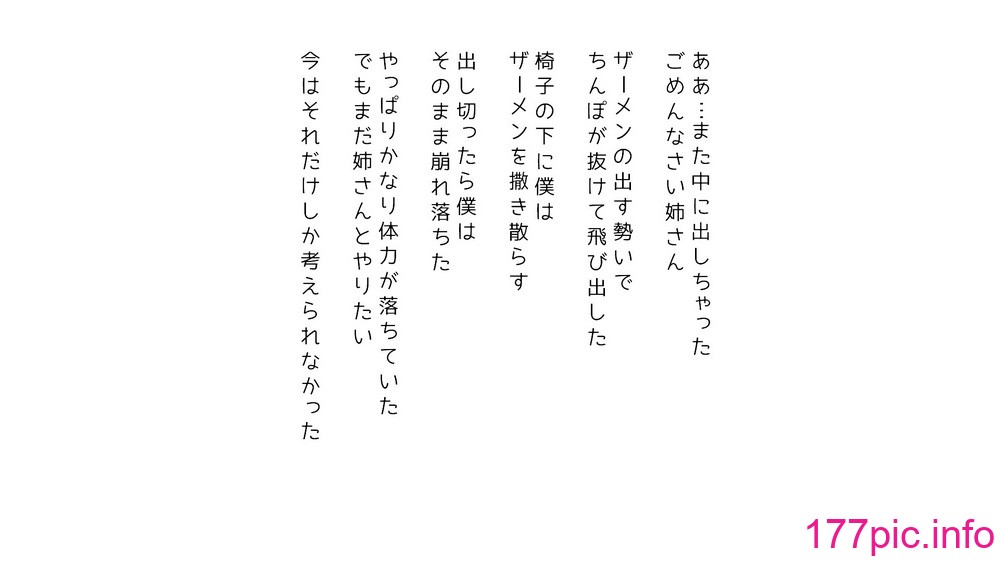 ああ…また中に出しちゃった
ごめんなさい姉さん
ザーメンの出す勢いで
ちんぽが抜けて飛び出した
椅子の下に僕は
ザーメンを撒き散らす
出し切ったら僕は
そのまま崩れ落ちた
やっぱりかなり体力が落ちていた
でもまだ姉さんとやりたい
今はそれだけしか考えられなかった
177pic.info